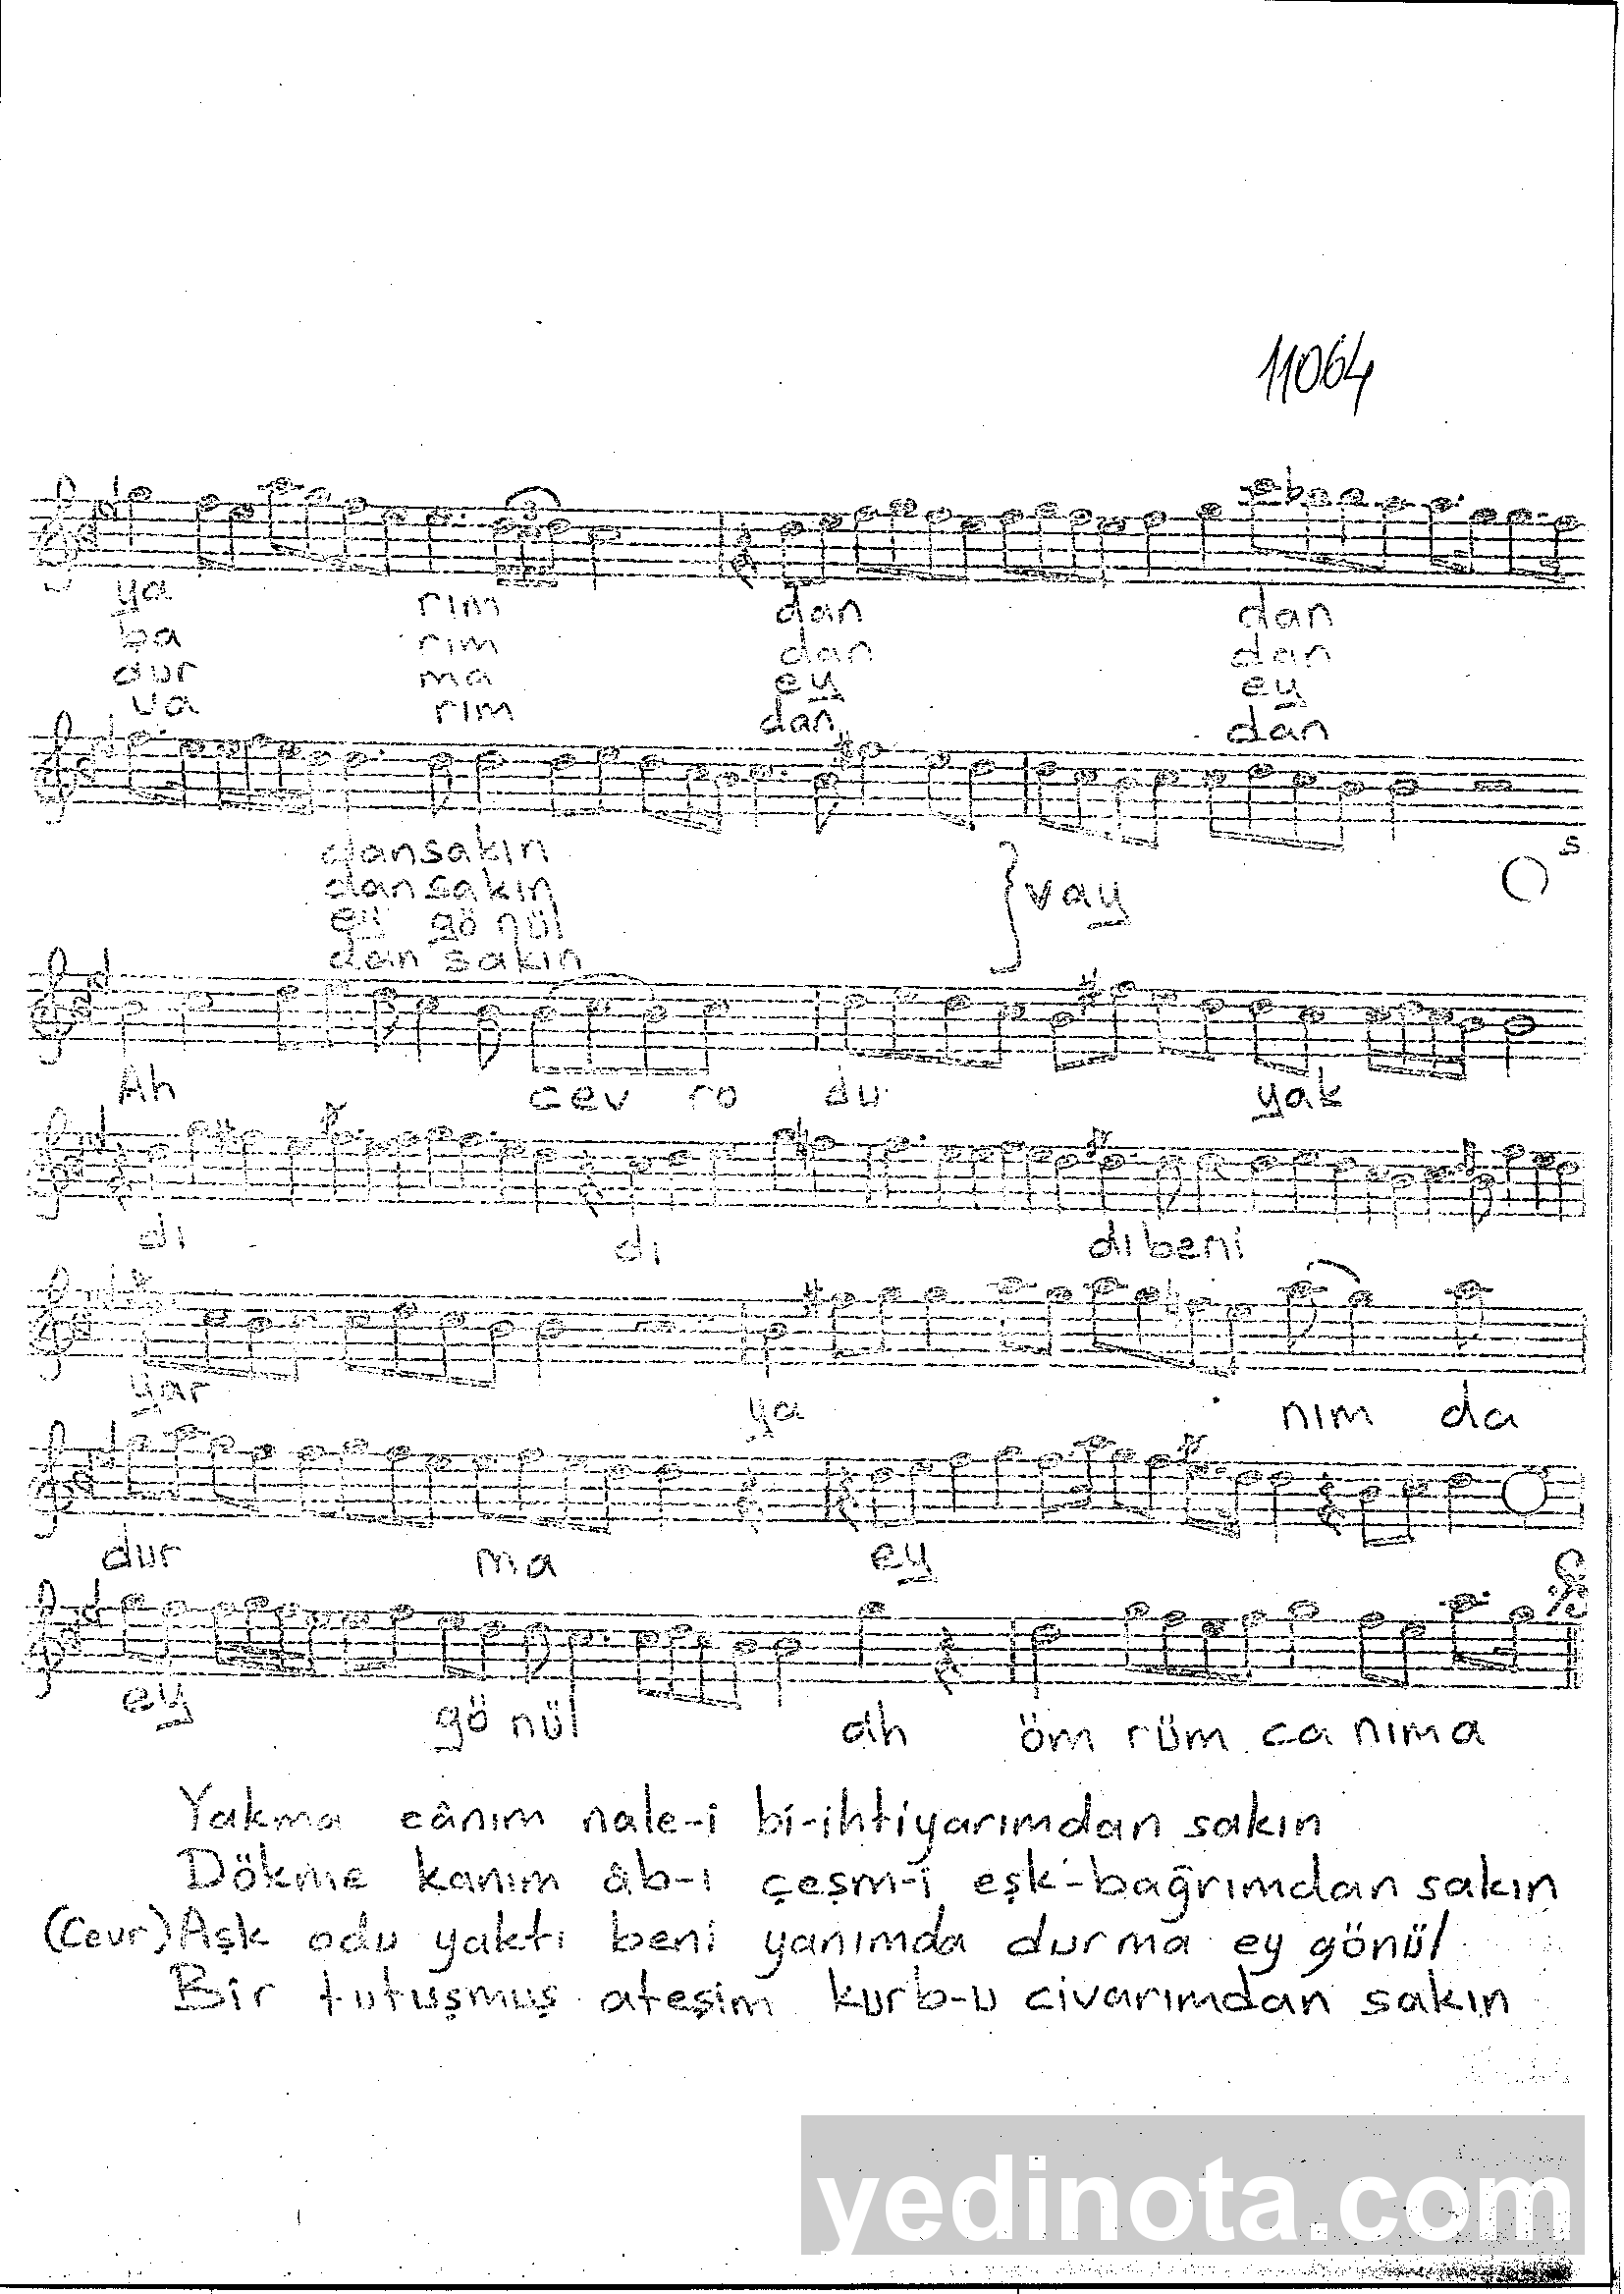 11064
3
ya rım dan dan
ba rım dan dan
dur ma ey ey
va rım dan dan
dansakın
dansakın } vay
ey gö nül
dan sakın
S
Ah cev ro du yak
di di dıbeni
yar ya nım da
dur ma ey
ey gö nül ah öm rüm ca nıma
Yakma cânım nale-i bi-ihtiyarımdan sakın
Dökme kanım âb-ı çeşm-i eşk-bağrımdan sakın
(Cevr) Aşk odu yaktı beni yanımda durma ey gönül
Bir tutuşmuş ateşim kurb-u civarımdan sakın
yedinota.com